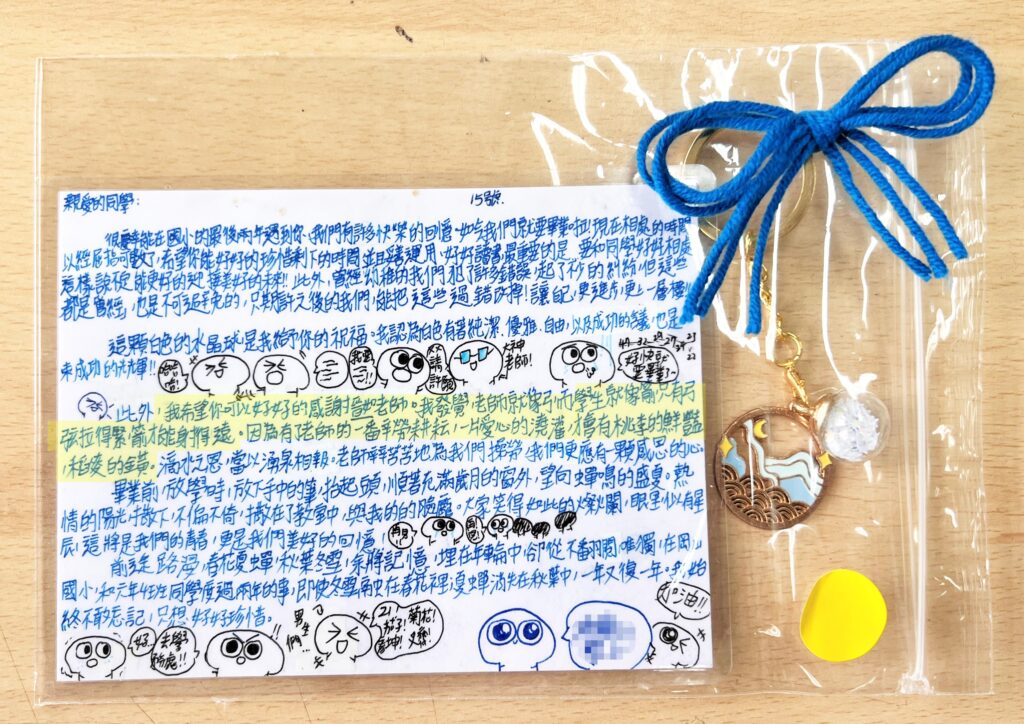 親愛的同學：
15號.
很慶幸能在國小的最後兩年遇到你，我們有許多快樂的回憶，如今我們就要畢業啦！現在相處的時間
以經屈指可數了，希望你能好好的珍惜剩下的時間並且善運用，好好讀書，最重要的是，要和同學好好相處
怎樣說定能更好的起
美好的未來!! 此外，曾經幼稚的我們犯了許多錯誤，起了不少的糾紛，但這些
都是曾經，也是不可避免的，只期許之後的我們，能把這些過錯改掉！讓自
更進步，更上一層樓
這顆白色的水晶球是我給予你的祝福。我認為白色有著純潔、優雅、自由，以及成功的含義，也是
未成功的
!!
大神
老師！
此外，我希望你可以好好的感謝
老師。我發覺，老師就像弓而學生就像箭只有弓
張拉得緊，箭才能射得遠。因為有了老師的一番辛勞耕耘，一片愛心的澆灌，才會有桃李的鮮豔，
稻麥的金黃。滴水之恩，當以湧泉相報。老師辛辛苦苦地為我們
我們更應有一顆感恩的心。
畢業前，放學時，放下手中的筆，抬起頭，順著充滿歲月的窗外，望向蟬鳴的盛夏。熱
情的陽光撒下，不偏不倚，撒在了教室中，與我的
。大家笑得如此的燦爛，眼里似有星
辰，這將是我們的青春，更是我們美好的回憶，
前途路漫，春花夏蟬，秋葉冬雪，
將記憶，埋在年輪中，卻從不翻閱，唯獨，在
國小，和六年
同學度過兩年的事，即使冬雪
在春花裡，夏蟬消失在秋葉中，一年又復一年。我始
終不敢忘記，只想好好珍惜。
好
去學
務處!!
男生
們…
21
茄子！
菊花！
加油!!